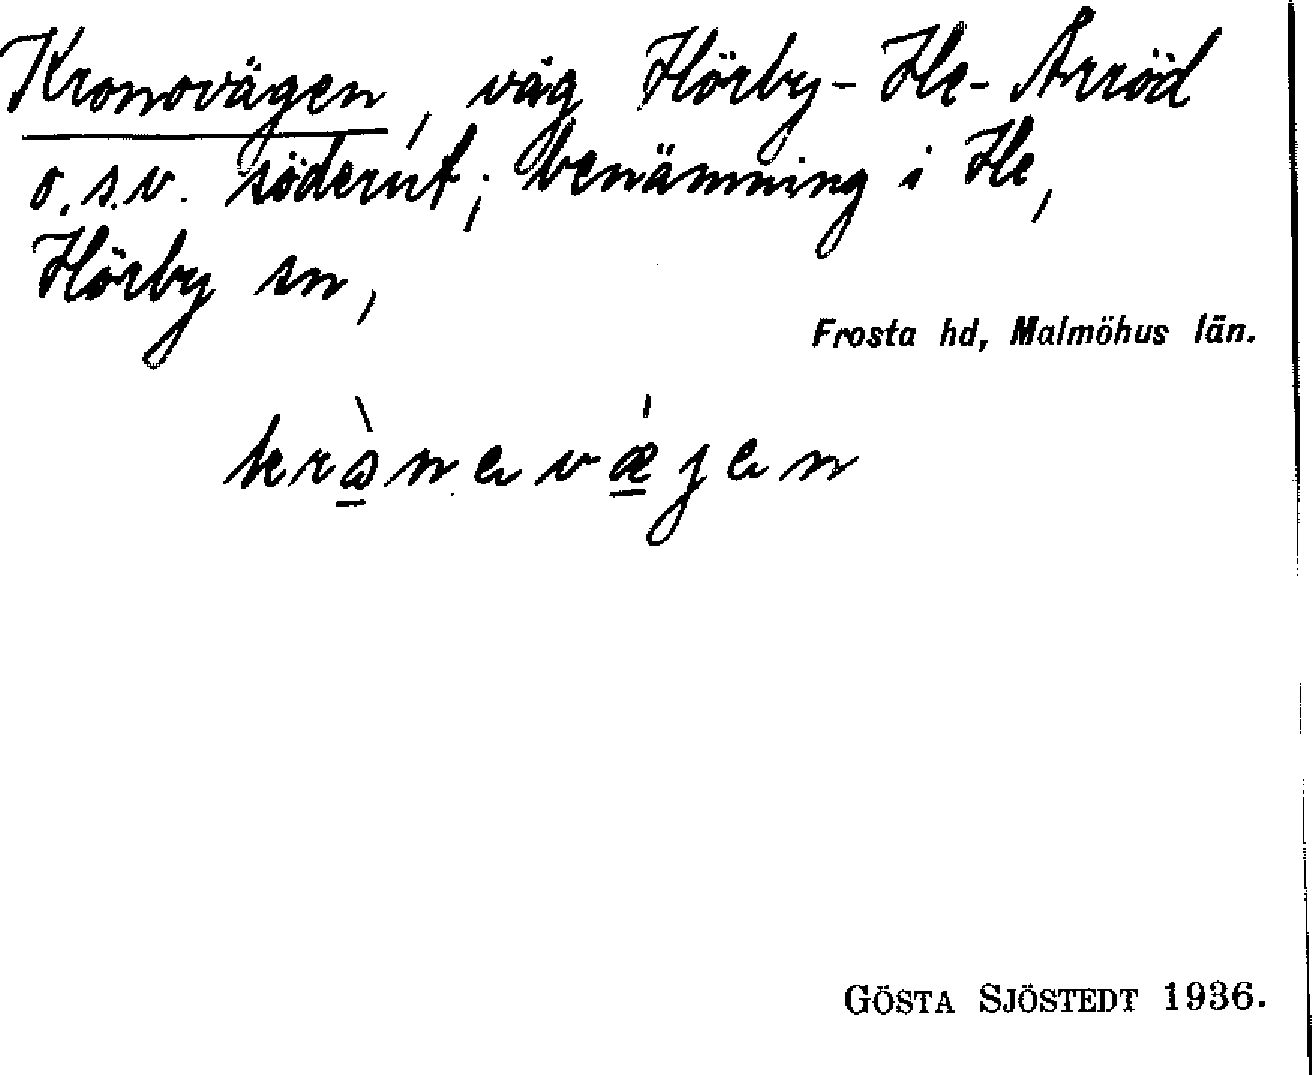 Kronovägen, väg Hörby - He - Arröd
o.s.v. söderut; benämning i He,
Hörby sn,
Frosta hd, Malmöhus län.
GÖSTA SJÖSTEDT 1936.